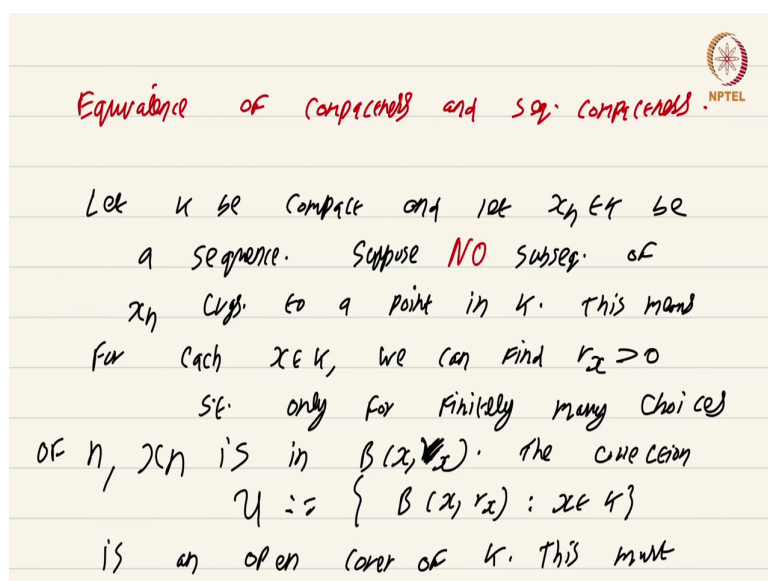 NPTEL
Equivalence of compactness and seq. compactness.
Let K be compact and let xₙ ∈ K be
a sequence. Suppose NO subseq. of
xₙ cvgs. to a point in K. This means
For each x ∈ K, we can find rₓ > 0
s.t. only for finitely many choices
of n, xₙ is in B(x, rₓ). The collection
U := { B(x, rₓ) : x ∈ K }
is an open cover of K. This must